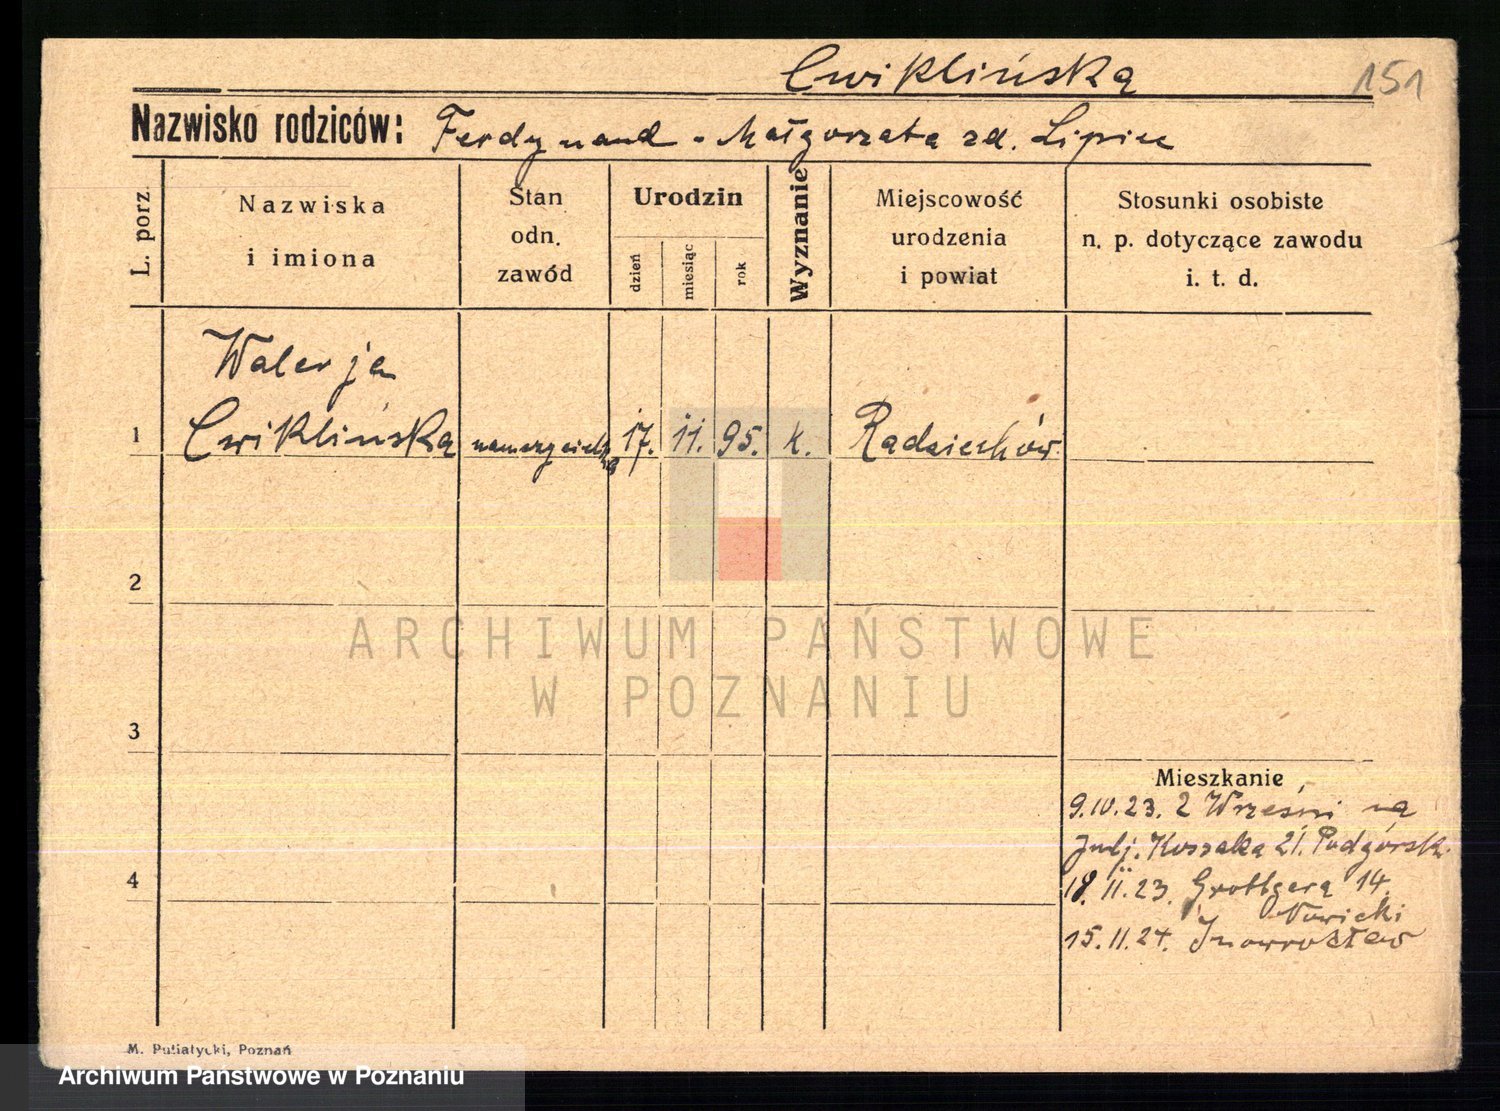 Cwiklińska
151
Nazwisko rodziców: Ferdynand - Małgorzata zd. Lipiec
L. porz.
Nazwiska i imiona
Stan odn. zawód
Urodzin
dzień
miesiąc
rok
Wyznanie
Miejscowość urodzenia i powiat
Stosunki osobiste n. p. dotyczące zawodu i. t. d.
Walerja
1 Cwiklińska 17. 11. 95. k. Radziechów
2
ARCHIWUM PAŃSTWOWE
W POZNANIU
3
Mieszkanie
9.10.23. z Wrześni na
Julj. Kossaka 21. Podgórsk.
4
18.11.23. Grottgera 14.
Nowicki
15.11.24. Inowrocław
M. Putiatycki, Poznań
Archiwum Państwowe w Poznaniu